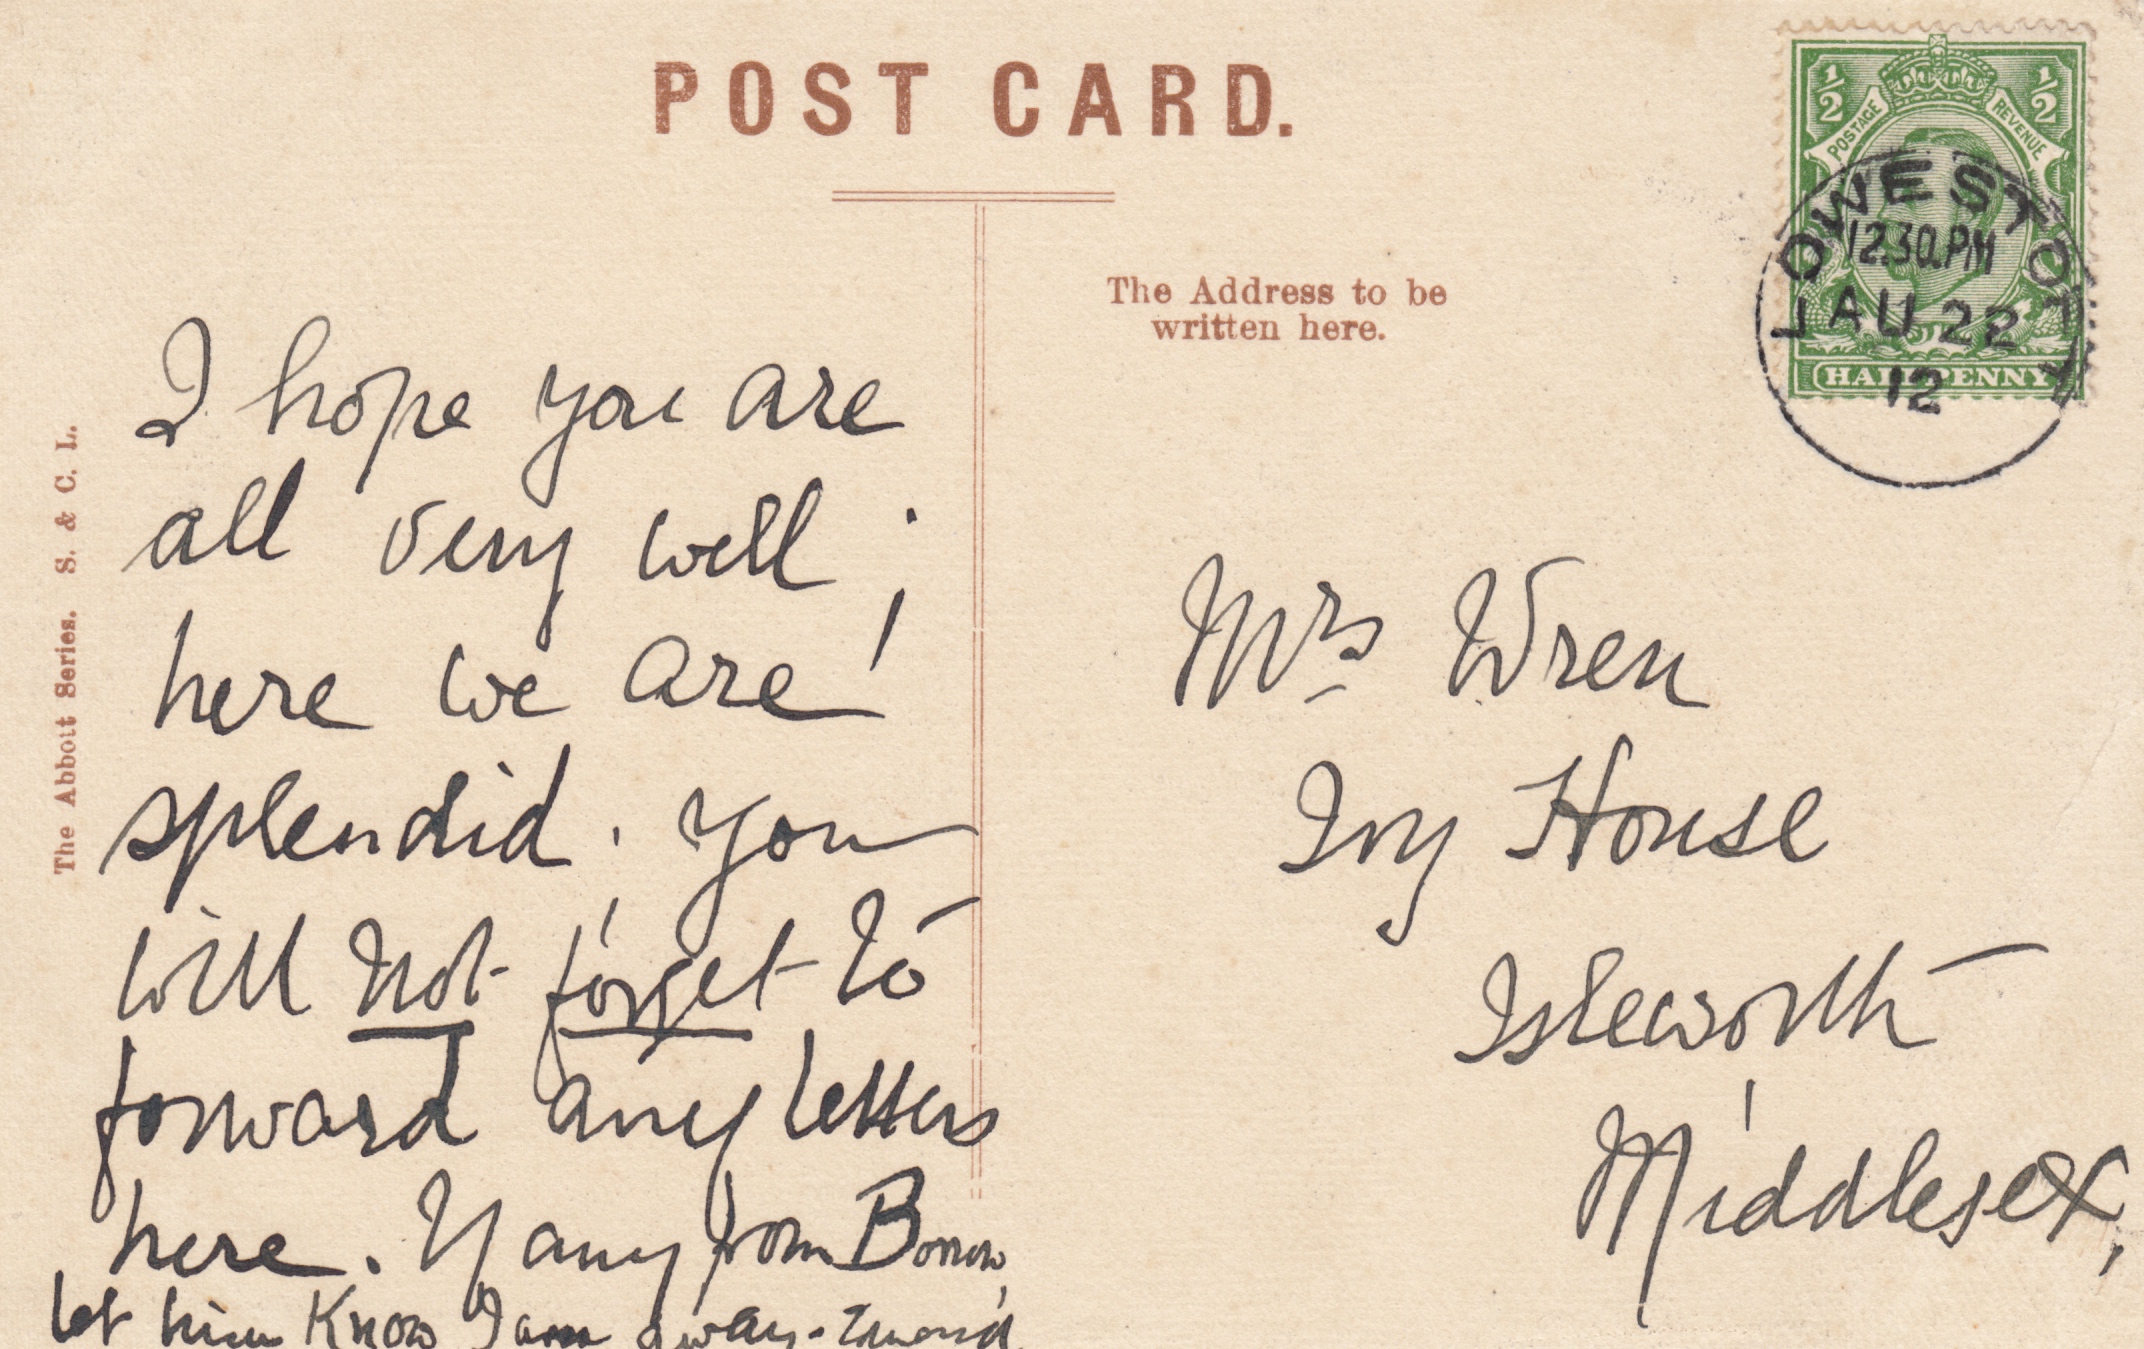 POST CARD.
The Address to be
written here.
The Abbott Series. S. & C. L.
½ ½
POSTAGE REVENUE
HALFPENNY
LOWESTOFT
12.30.PM
AU 22
12
I hope you are
all very well;
here we are!
splendid; you
will not forget to
forward any letters
here. If any from Borrow,
let him know I am away -
Mrs Wren
Ivy House
Isleworth
Middlesex,